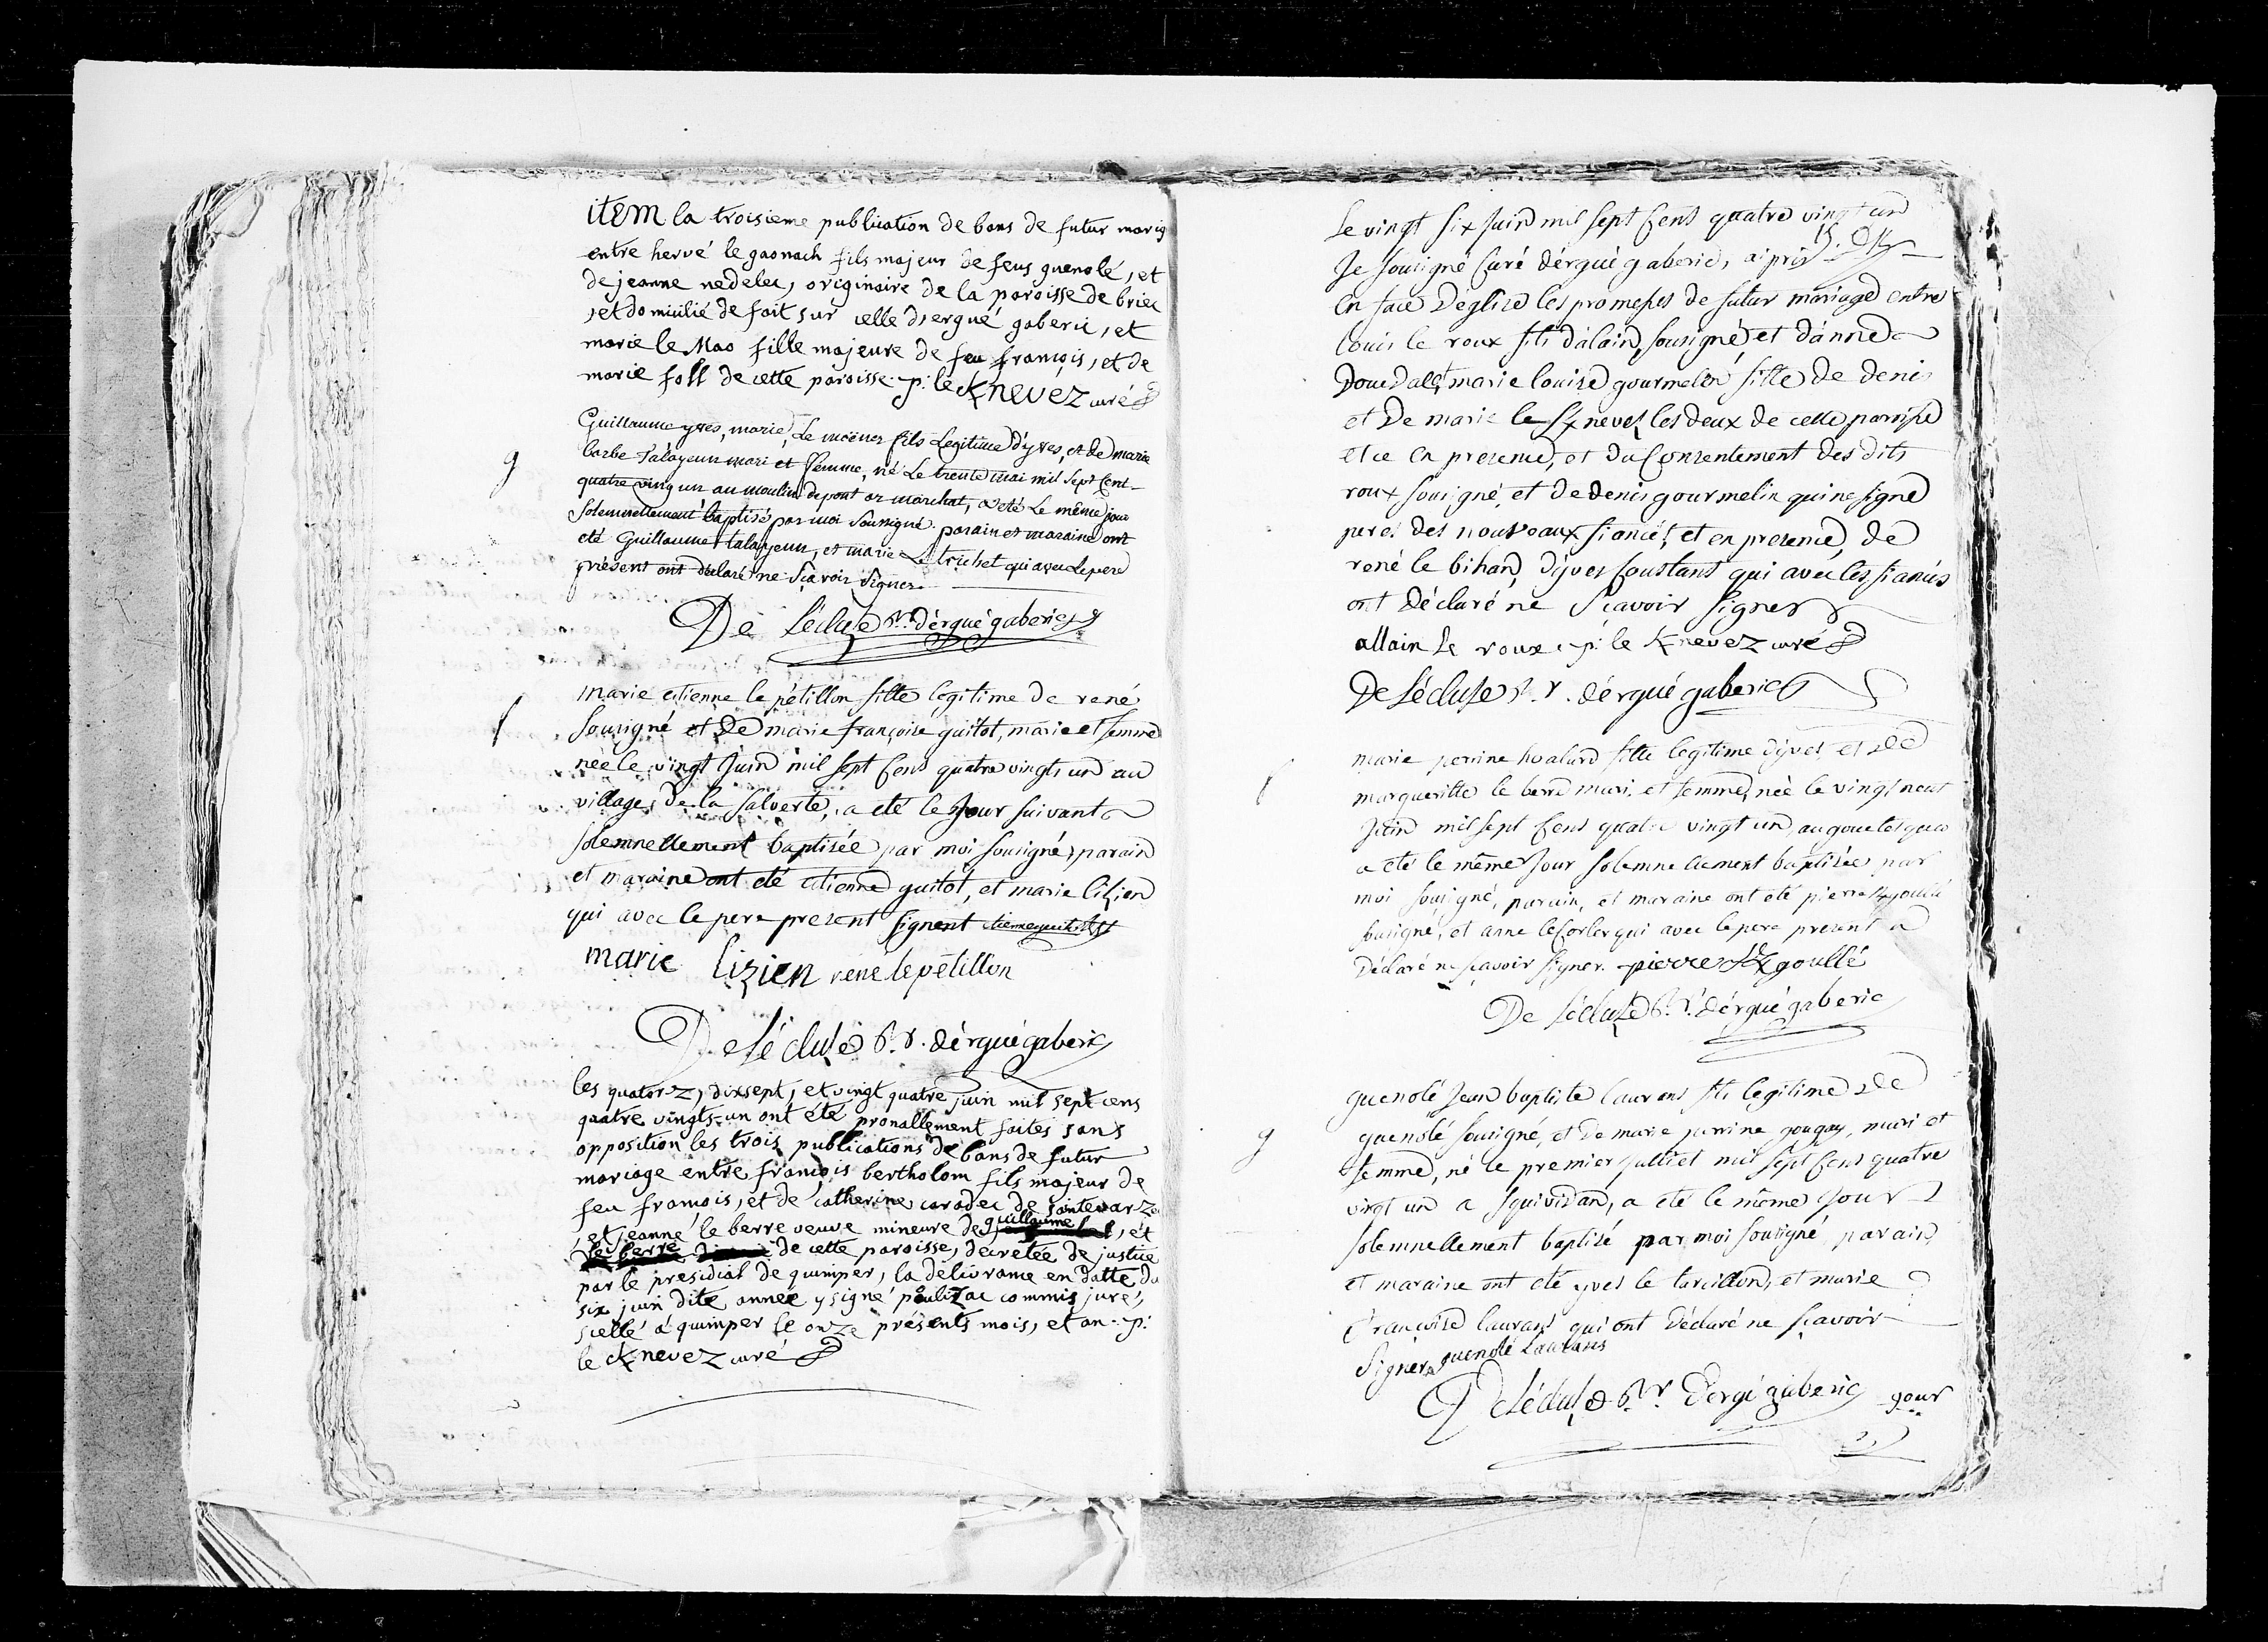 item la troisieme publication de bans de futur mariag
entre hervé le gaonach fils majeur de feus guenolé, et
de jeanne nedelec, originaire de la paroisse de briec
, et domicilié de fait sur celle d'ergué gaberic, et
marie le Mao fille majeure de feu françois, et de
marie foll de cette paroisse. p: le Knevez curé
Guillaume yves, marie, Le moënes fils Legitime d'yves, et de marie
barbe Talayeun mari et femme, né Le trente mai mil sept Cent
g
quatre ving un au moulin de pont ar marchat, a eté Le même jour
solemnellement baptisé par moi Soussigné. parain et maraine ont
eté Guillaume talayeun, et marie Le trichet qui avec Le pere
présent ont déclaré ne sçavoir signer
De Lécluse r. d'ergué gaberic
marie etienne le pétillon fille legitime de rené
f
sousigné et de marie françoise guitot, marie et femme
née le vingt Juin mil sept Cens quatre vingts un au
village de la Salverte, a eté le Jour suivant
solemnellement baptisée par moi sousigné, parain
et maraine ont eté etienne guitot, et marie lizien
qui avec le pere present signent etienne guitot
marie lizien rené le pétillon
De Lécluse r. d'ergué gaberic
les quatorz, dixsept, et vingt quatre juin mil sept cens
quatre vingts-un ont été pronallement faites sans
opposition les trois publications de bans de futur
mariage entre françois bertholom fils majeur de
feu françois, et de catherine caradec de
, et jeanne le berre veuve mineure de guillaume, et
le berre de cette paroisse, decretée de justice
par le presidial de quimper, la délivrance en datte du
six juin dite année y signé poulizac commis juré,
scellé à quimper le onze présents mois, et an. p:
le Knevez curé
Le vingt six Juin mil sept Cens quatre vingt un
Je sousigné Curé d'ergué gaberic, ai pris
en face d'eglise les promesses de futur mariage entre
louis le roux fils d'alain, sousigné, et d'anne
Douedal et marie louise gourmelen fille de denis
et de marie le Knevez les deux de cette paroisse
et ce en presence, et du Consentement des dits
roux sousigné, et de denis gourmelin qui ne signe
peres des nouveaux fiancés, et en presence, de
rené le bihan, d'yves Coustans qui avec les fiancés
ont déclaré ne sçavoir signer
allain le roux p: le Knevez curé
De Lécluse r. d'ergué gaberic
marie perrine hoalard fille legitime d'yves et de
f
margueritte le berre mari, et femme, née le vingt neuf
Juin mil sept Cens quatre vingt un
a eté le même Jour solemnellement baptisée par
moi sousigné, parain, et maraine ont eté pierre Kgoullé
sousigné, et anne le Corler qui avec le pere present a
déclaré ne sçavoir signer. pierre Kgoullé
De Lécluse r. d'ergué gaberic
guenolé Jean baptiste laurans fils legitime de
g
guenolé sousigné, et de marie perrine gougay, mari et
femme, né le premier Juillet mil sept Cens quatre
vingt un a Squividan, a eté le même Jour
solemnellement baptisé par moi sousigné parain,
et maraine ont eté yves le torcillon, et marie
françoise laurans qui ont déclaré ne sçavoir
signer guenolé Laurans
De Lécluse r. d'ergé gaberic
gour